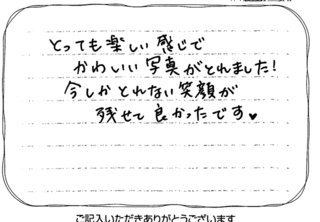 とっても楽しい感じで
かわいい写真がとれました!
今しかとれない笑顔が
残せて良かったです♥
ご記入いただきありがとうございます